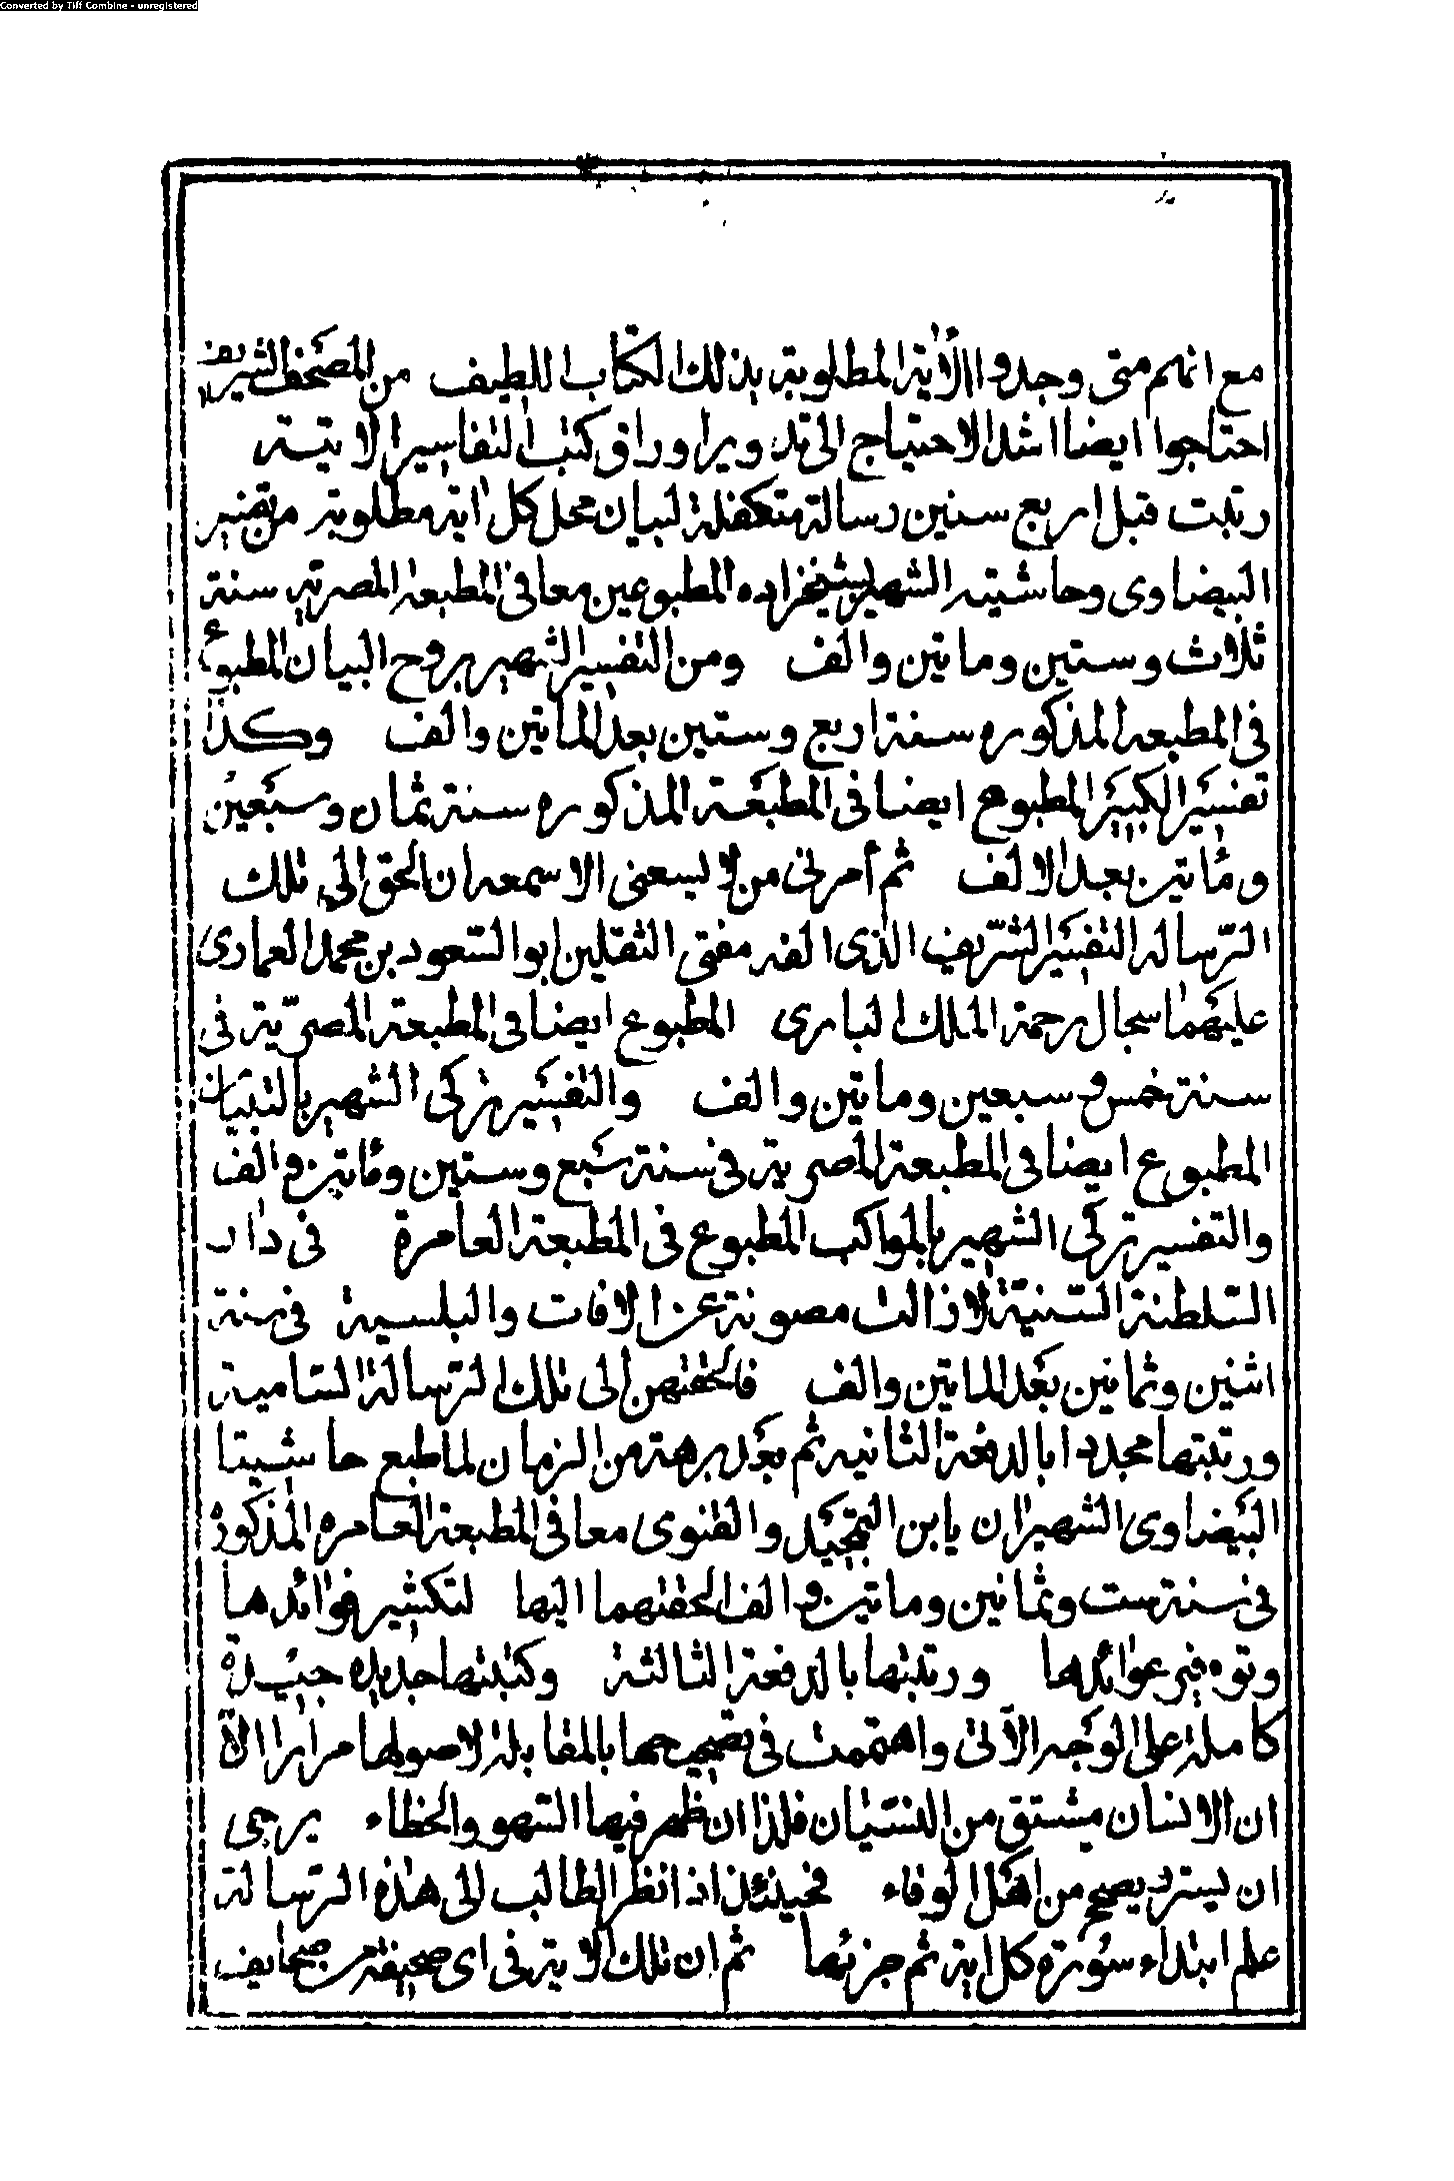 Converted by Tiff Combine - unregistered
مع انهم متى وجدوا الآية المطلوبة بذلك الكتاب اللطيف من المصحف الشريف لا
احتاجوا ايضا اشد الاحتياج الى تدوير اوراق كتب التفاسير الاتيته
رتبت قبل اربع سنين رسالة متكفلة لبيان محل كل اية مطلوبة من تفسير
البيضاوى وحاشيته الشهير بشيخزاده المطبوعين معا فى المطبعه المصريه سنة
ثلاث وستين ومايتين والف ومن التفسير الشهير بروح البيان المطبوع
فى المطبعه المذكوره سنة اربع وستين بعد المايتين والف وكذا
تفسير الكبير المطبوع ايضا فى المطبعة المذكوره سنة ثمان وسبعين
ومأتين بعد الالف ثم أمرنى من لا يسعنى الا سمعه ان الحق الى تلك
الرساله التفسير الشريف الذى الفه مفتى الثقلين ابو السعود بن محمد العمادى
عليهما سجال رحمة الملك البارى المطبوع ايضا فى المطبعة المصرية فى
سنة خمس و سبعين ومايتين والف والتفسير تركى الشهير بالتبيان
المطبوع ايضا فى المطبعة المصرية فى سنة سبع وستين ومأتين والف
والتفسير تركى الشهير بالمواكب المطبوع فى المطبعة العامرة فى دار
السلطنة السنية لا زالت مصونة عن الافات والبلسية فى سنة
اثنين وثمانين بعد المايتين والف فالحقتهن الى تلك الرسالة السامية
ورتبتها مجددا بالدفعة الثانيه ثم بعد برهة من الزمان لما طبع حاشيتا
البيضاوى الشهيران يابن التمجيد والقنوى معا فى المطبعة العامره المذكوره
فى سنة ست وثمانين ومايتين و الف الحقتهما اليها لتكثير فوائدها
وتوفير عوائدها ورتبتها بالدفعة الثالثة وكتبتها جديده جيدة
كاملة على الوجه الآتى واهتممت فى تصحيحها بالمقابلة لاصولها مرارا الآ
ان الانسان مشتق من النسيان فلذا ان ظهر فيها السهو والخطاء يرجى
ان يسترد يصحح من اهل الوفاء فحينئذ اذا نظر الطالب الى هذه الرسالة
علم ابتداء سورة كل اية ثم جزئها ثم ان تلك الاية فى اى صحيفة من صحايف